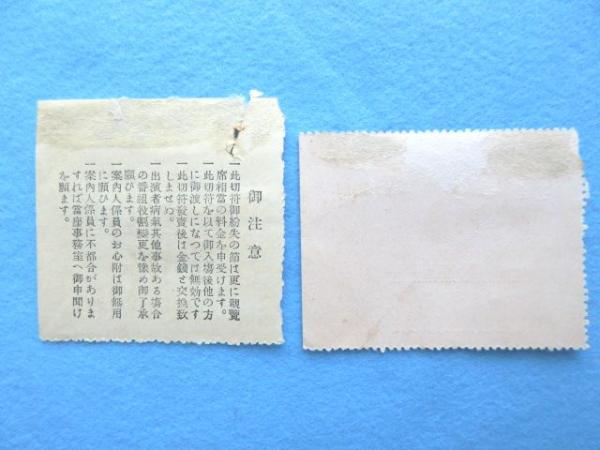 御注意
一此切符御紛失の節は更に観覧
席相當の料金を申受けます。
一此切符を以て御入場後他の方
に御渡しになつては無効です
一此切符發賣後は金錢と交換致
しませぬ。
一出演者病氣其他事故ある塲合
の番組役割變更を豫め御了承
願ひます。
一案内人係員のお心附は御無用
に願ひます。
一案内人係員に不都合がありま
すれば當座事務室へ御申聞け
を願ます。